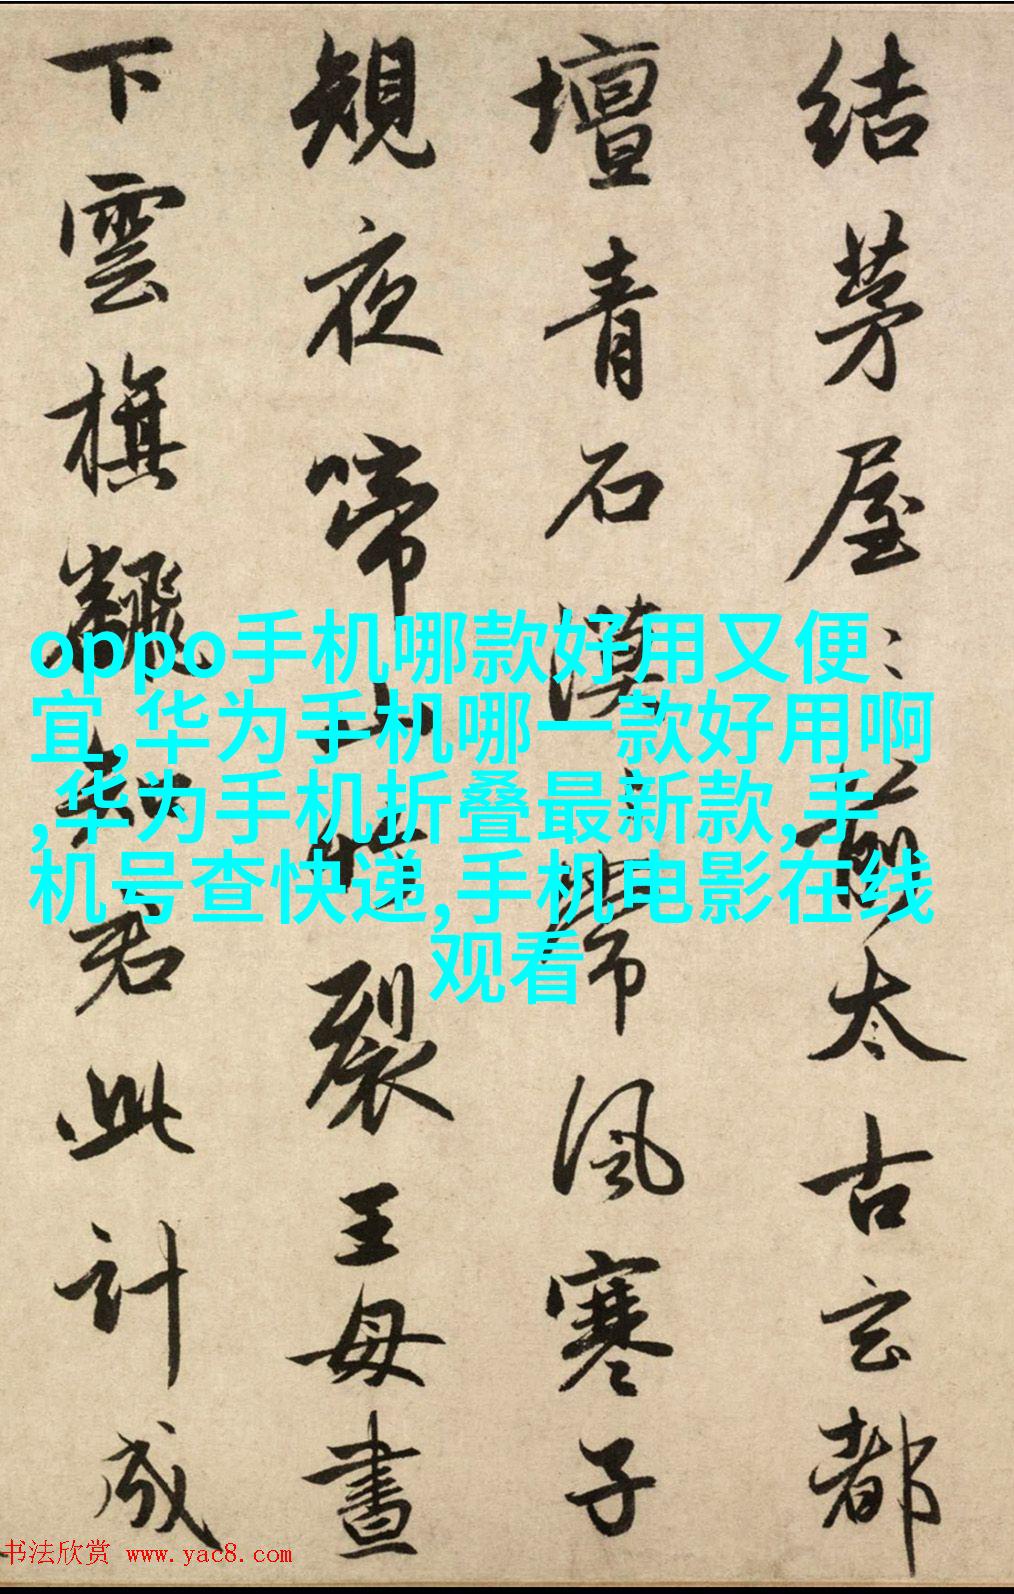 結茅屋々前太古玄都
壇青石漠々常風寒子
規夜啼山竹裂王母晝
下雲旗飜知君此計成
oppo手机哪款好用又便
宜,华为手机哪一款好用啊
,华为手机折叠最新款,手
机号查快递,手机电影在线
观看
书法欣赏 www.yac8.com